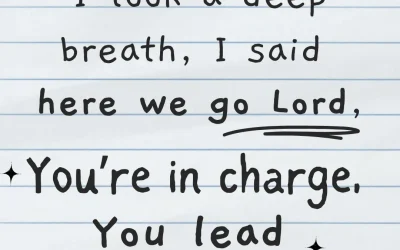 I took a deep
breath, I said
here we go Lord,
You're in charge.
You lead